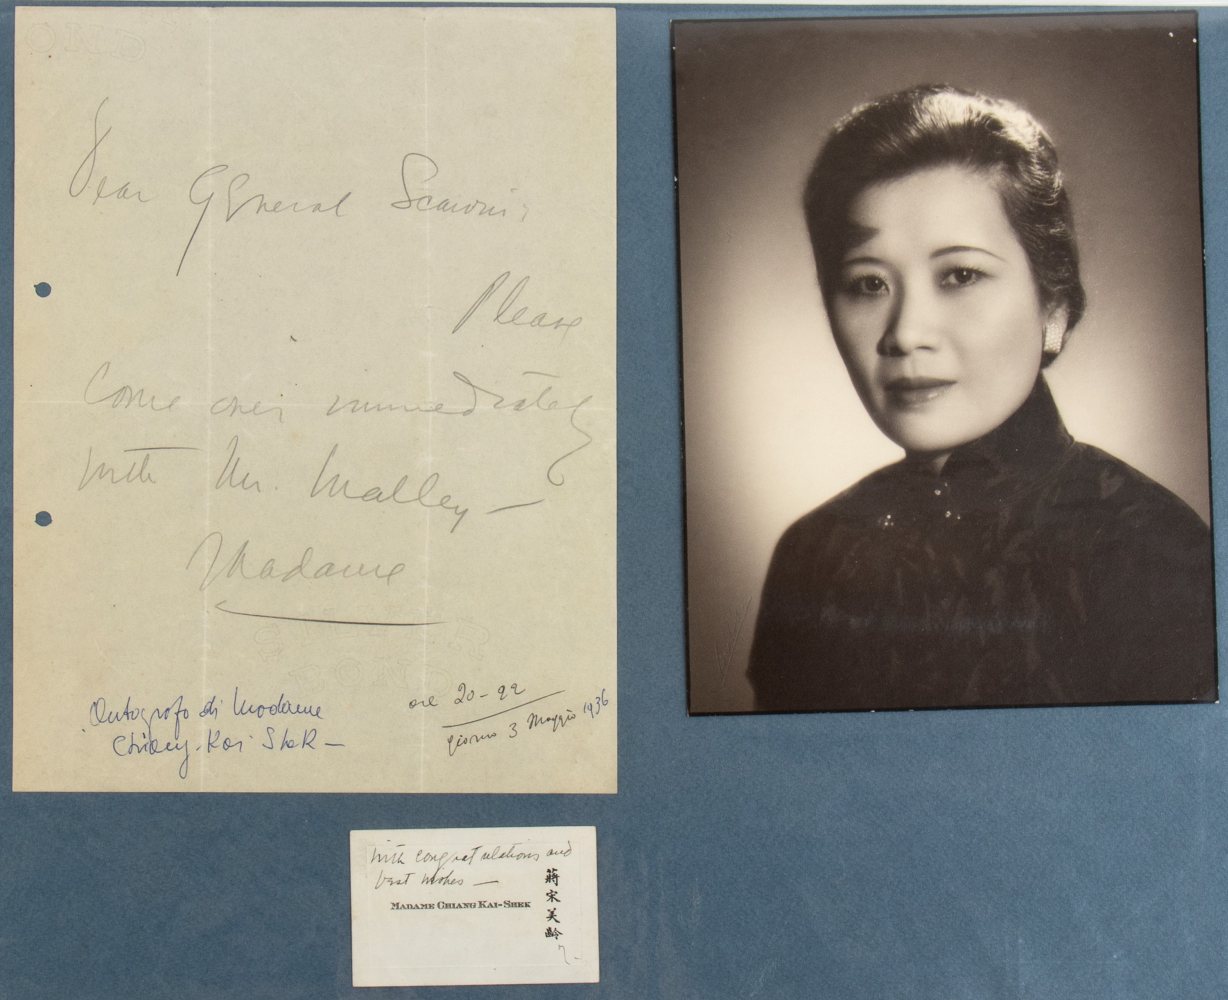 Dear General Scaroni;
Please
Come over immediately
with Mr. Malley —
Madame
Autografo di Madame
Chiang-Kai Shek —
ore 20-22
giorno 3 Maggio 1936
with congratulations and
best wishes —
MADAME CHIANG KAI-SHEK
蔣宋美齡